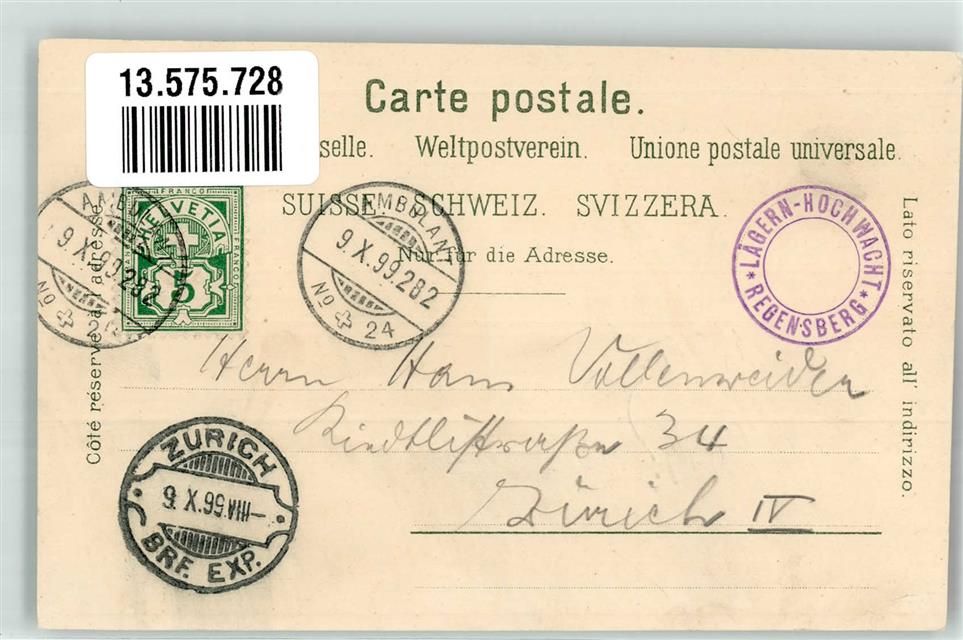 13.575.728
Carte postale.
selle. Weltpostverein. Unione postale universale.
SUISSE. SCHWEIZ. SVIZZERA.
Nur für die Adresse.
Côté réservé à l'adresse.
Lato riservato all' indirizzo.
FRANCO
HELVETIA
5
AMBULANT
9.X.99.282
No 24
AMBULANT
9.X.99.282
No 24
* LÄGERN-HOCHWACHT *
REGENSBERG
Herrn Hans Vollenweider
Riedtlistraße 34
Zürich IV
ZÜRICH
BRF. EXP.